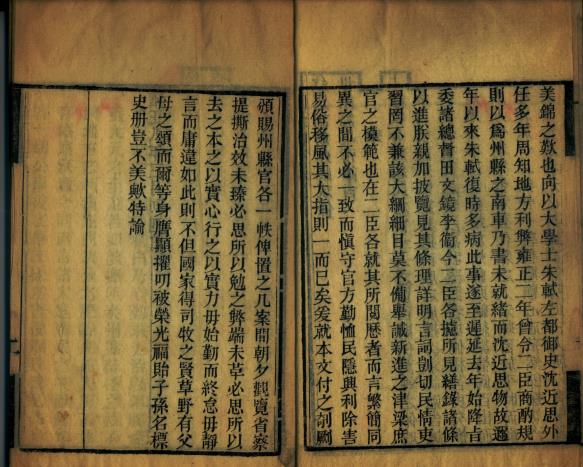 美錦之歎也向以大學士朱軾左都御史沈近思外
任多年周知地方利獘雍正二年曾令二臣商酌規
則以爲州縣之南車乃書未就緒而沈近思物故邇
年以來朱軾復時多病此事遂至遲延去年始降旨
委諸總督田文鏡李衞令二臣各據所見繕錄諸條
以進朕親加披覽見其條理詳明言詞剴切民情吏
習罔不兼該大綱細目莫不備舉誠新進之津梁庶
官之模範也在二臣各就其所閱歷者而言繁簡同
異之間不必一致而慎守官方勤恤民隱興利除害
易俗移風其大指則一而已矣爰就本文付之剞劂
頒賜州縣官各一帙俾置之几案間朝夕觀覽省察
提撕治效未臻必思所以勉之獘端未革必思所以
去之本之以實心行之以實力毋始勤而終怠毋靜
言而庸違如此則不但國家得司牧之賢草野有父
母之頌而爾等身膺顯擢叨被榮光福貽子孫名標
史册豈不美歟特諭